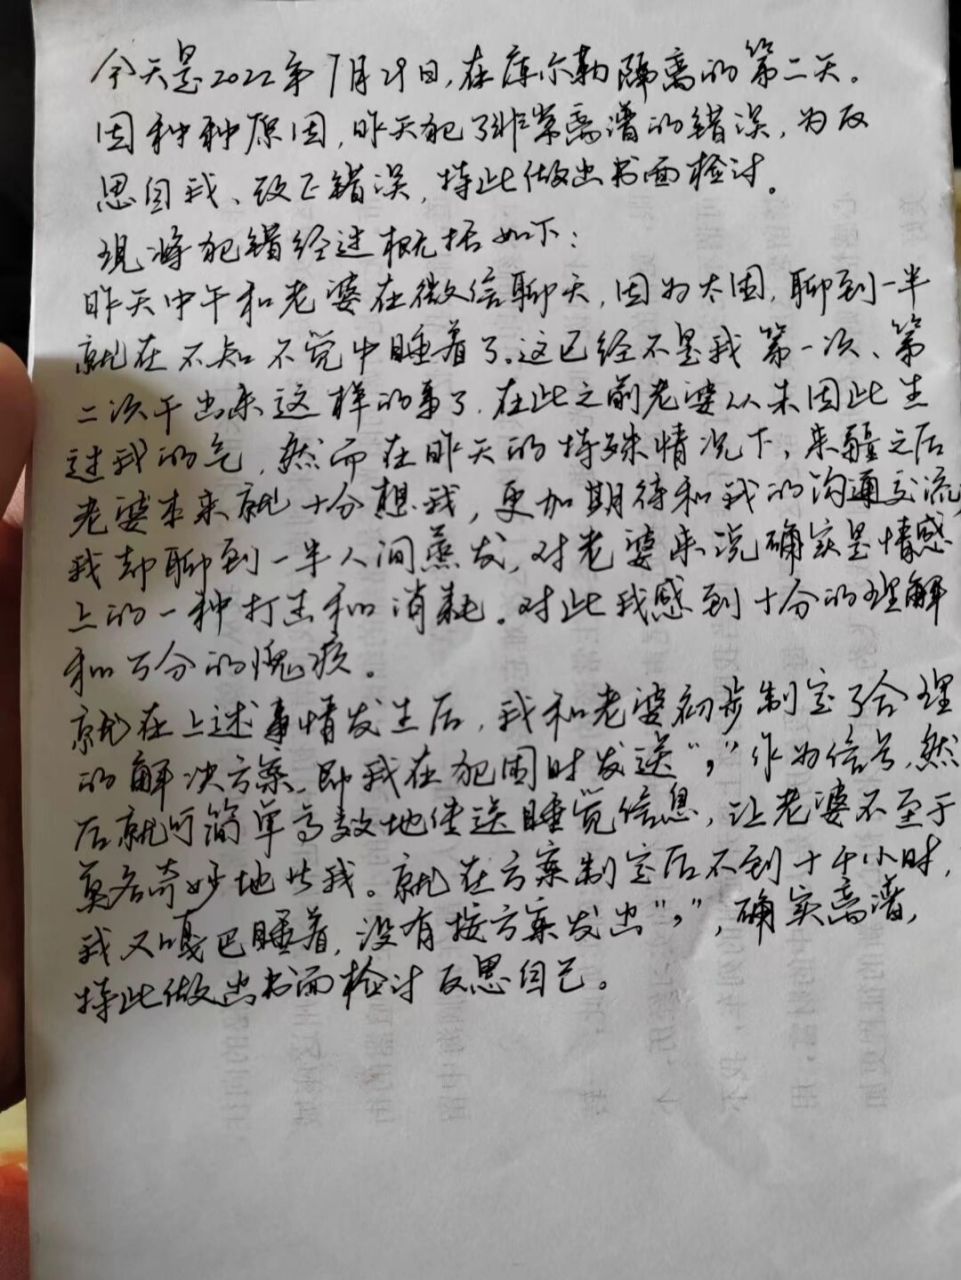 今天是2022年7月29日,在库尔勒隔离的第二天。
因种种原因,昨天犯了非常离谱的错误,为反
思自我、改正错误,特此做出书面检讨。
现将犯错经过概括如下:
昨天中午和老婆在微信聊天,因为太困,聊到一半
就在不知不觉中睡着了。这已经不是我第一次、第
二次干出来这样的事了,在此之前老婆从未因此生
过我的气,然而在昨天的特殊情况下,来疆之后
老婆本来就十分想我,更加期待和我的沟通交流,
我却聊到一半人间蒸发,对老婆来说确实是情感
上的一种打击和消耗。对此我感到十分的理解
和万分的愧疚。
就在上述事情发生后,我和老婆初步制定了合理
的解决方案,即我在犯困时发送“,”作为信号,然
后就可简单高效地传送睡觉信息,让老婆不至于
莫名奇妙地等我。就在方案制定后不到十个小时,
我又嘎巴睡着,没有按方案发出“,”,确实离谱,
特此做出书面检讨反思自己。